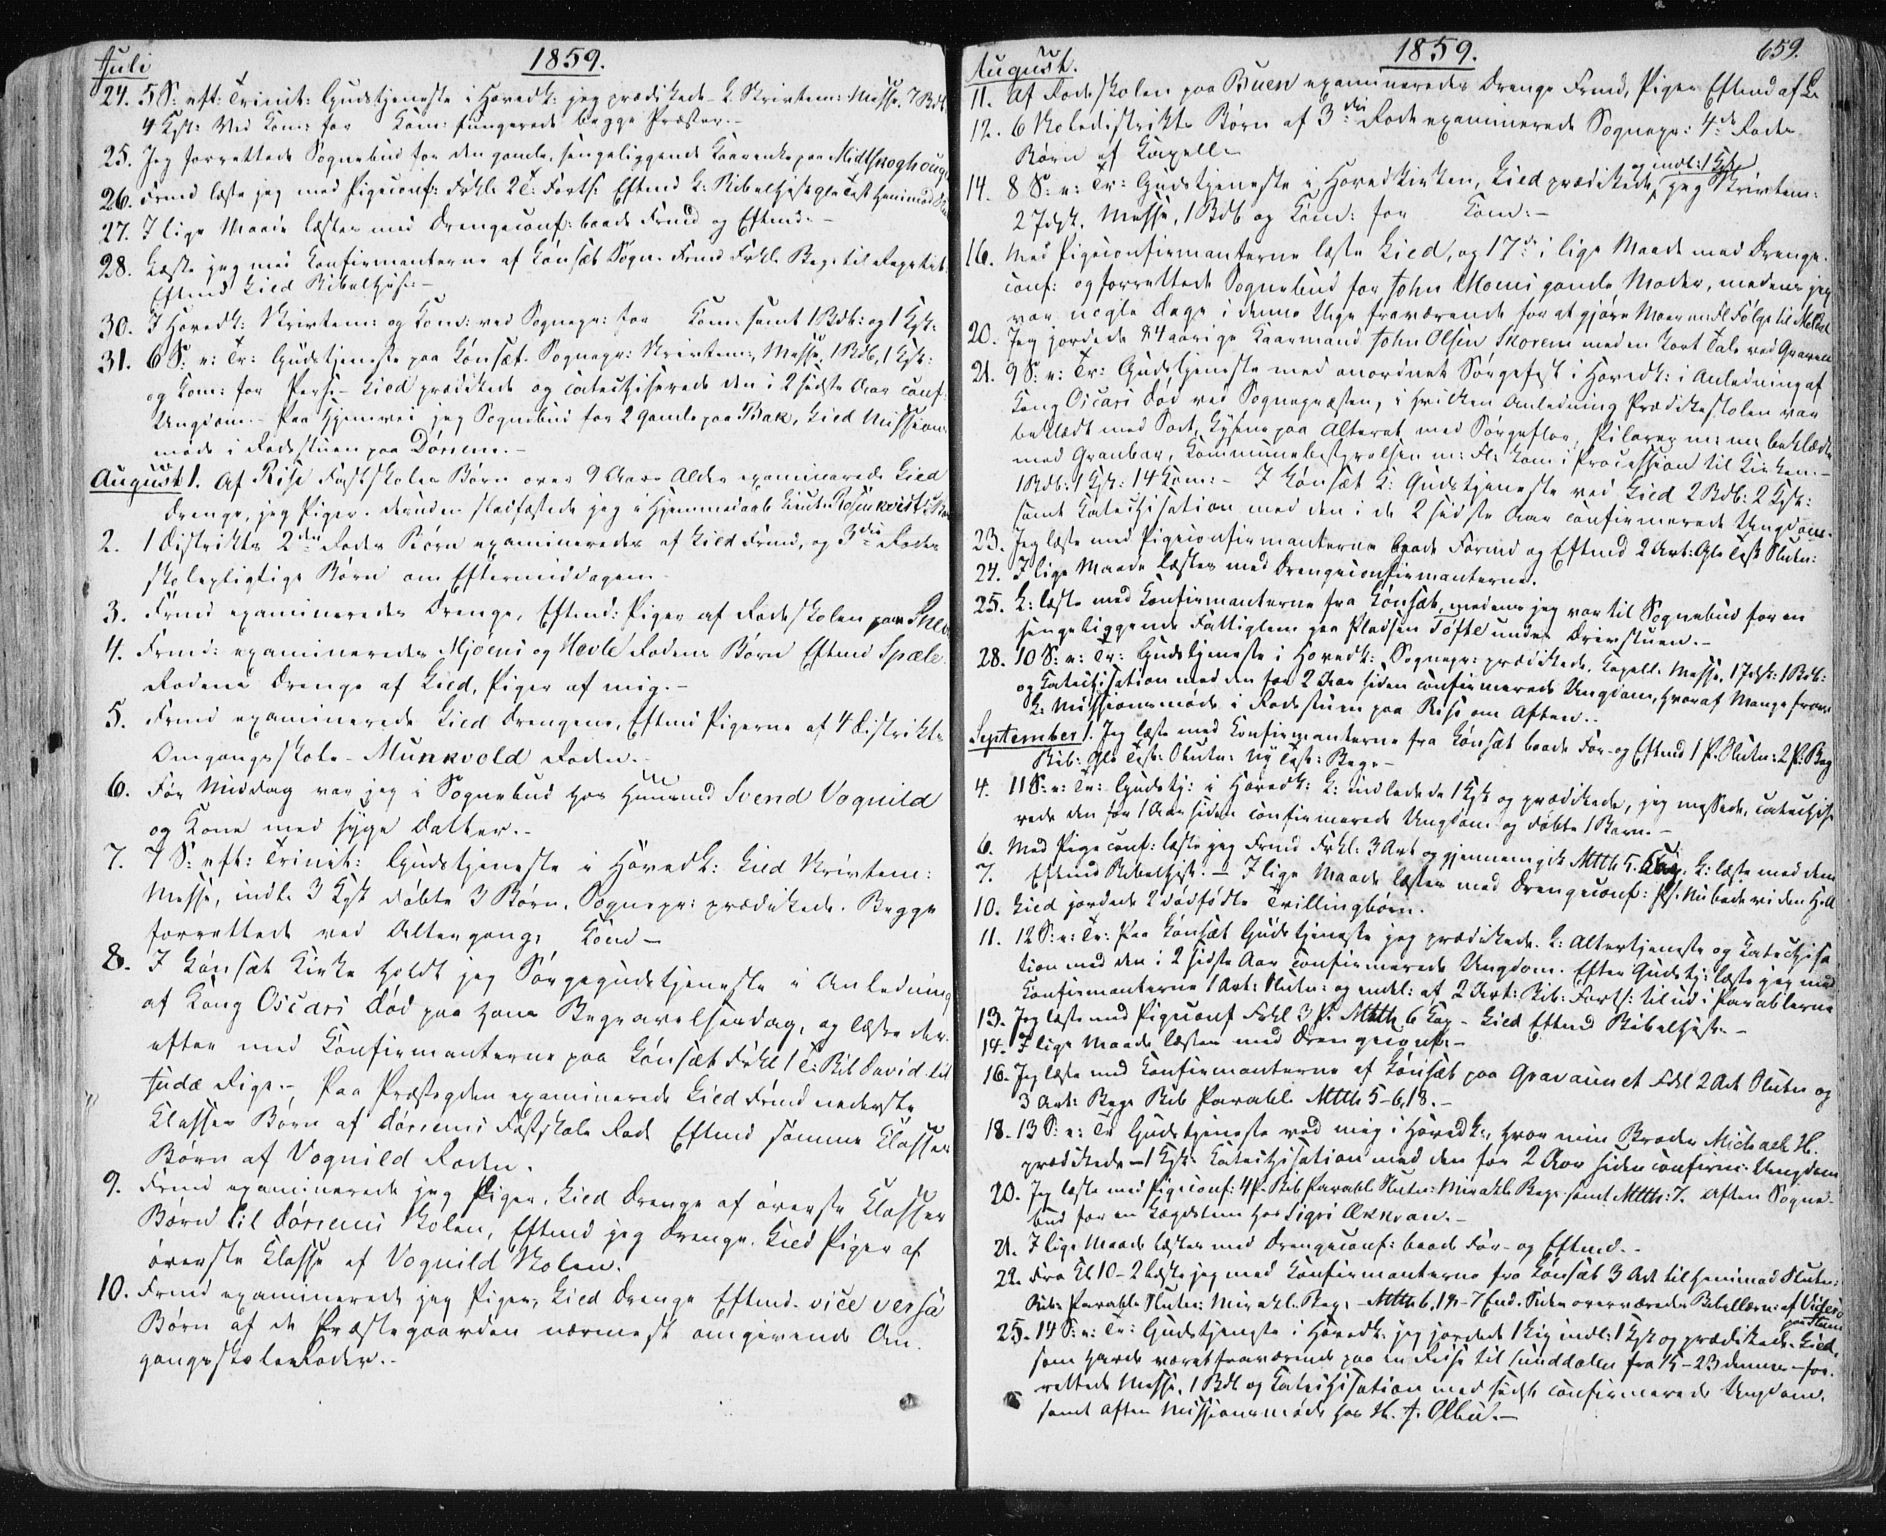 Juli
1859.
24. 5 S: eft: Trinit: Gudstjeneste i Hovedk: jeg prædikede. L. Skriftem: Messe, 7 Bdb
4 Kgk: Ved Kom: for Kom: fungerede begge Præster.
25. Jeg forrettede Sognebud for den gamle, sengeliggende Kaarenke paa Midtskoghoug
26. Frmd læste jeg med Pigeconf: Frkl: 2 T: Forts: Eftmd L: Bibelhist: gle Test
27. I lige Maade læstes med Drengeconf: baade Frmd og Eftmd. -
28. Læste jeg med Confirmanterne af Lønset Sogn. Frmd Frkl. Beg: til
Eftmd Lied Bibelhist: -
30. I Hovedk: Skriftem: og Kom: ved Sognepr: for Kom: samt 1 Bdb: og 1 Kgk:
31. 6 S. e: Tr: Gudstjeneste paa Lønset. Sognepr: Skriftem:, Messe, 1 Bdb, 1 Kgk:
og Kom: for Pers: - Lied prædikede og catechiserede den i 2 sidste Aar conf:
Ungdom. - Paa Hjemvei jeg Sognebud for 2 gamle paa Bak, Lied Missions
møde i Rodestuen paa Dørrem. -
August 1. Af Rise Fastskoles Børn over 9 Aars Alder examinerede Lied
Drenge, jeg Piger. Desuden stadfæstede jeg i Hjemmedaab Lieutn Rosenkvist's
2. 1 Distrikts 2den Rodes Børn examineredes af Lied Frmd, og 3die Rodes
skolepligtige Børn om Eftermiddagen.
3. Frmd examineredes Drenge, Eftmd: Piger af Rodeskolen paa
4. Frmd: examineredes Mjøen og Hevle Rodens Børn Eftmd Spæle-
Rodens Drenge af Lied, Piger af mig. -
5. Frmd examinerede Lied Drengene, Eftmd Pigerne af 4 Distrikts
Omgangsskole - Munkvold Roden. -
6. Før Middag var jeg i Sognebud hos Huusmd Svend Vognild
og Kone med syge Datter. -
7. 7 S: eft: Trinit: Gudstjeneste i Hovedk: Lied Skriftem:
Messe, indl: 3 Kgk døbte 3 Børn. Sognepr: prædikede. Begge
forrettede ved Altergang: Kom -
8. I Lønset Kirke holdt jeg Sørgegudstjeneste i Anledning
af Kong Oscars Død paa hans Begravelsesdag, og læste der-
efter med Confirmanterne paa Lønset Frkl 1 T: Bib David til
Judæ Rige. - Paa Præstegden examinerede Lied Frmd nederste
Klasses Børn af Dørrems Fastskole Rode Eftmd samme Klasses
Børn af Vognild Roden.
9. Frmd examinerede jeg Piger, Lied Drenge af øverste Klasses
Børn til Dørrems Skolen, Eftmd jeg Drenge. Lied Piger af
øverste Klasse af Vognild Skolen.
10. Frmd examinerede jeg Piger, Lied Drenge Eftmd. vice versa
Børn af de Præstegaarden nærmest omgivende Om-
gangsskoleRoder. -
August.
1859.
659.
11. Af Rodeskolen paa Buen examineredes Drenge Frmd, Piger Eftmd af L.
12. 6 Skoledistrikts Børn af 3die Rode examinerede Sognepr: 4de Rodes
Børn af Kapell. -
og indl: 1 Kgk
14. 8 S: e: Tr: Gudstjeneste i Hovedkirken, Lied prædikede, jeg Skriftem:
2 Jdgk. Messe, 1 Bdb og Kom: for Kom: -
16. Med Pigeconfirmanterne læste Lied, og 17de i lige Maade med Drenge-
conf: og forrettede Sognebud for John Mjøens gamle Moder, medens jeg
var nogle Dage i denne Uge fraværende for at gjøre Moer m: Fl Følge til Meldal
20. Jeg jordede 84 aarige Kaarmand John Olsen Skorem med en kort Tale ved Graven
21. 9 S: e: Tr: Gudstjeneste med anordnet Sørgefest i Hovedk: i Anledning af
Kong Oscars Død ved Sognepræsten, i hvilken Anledning Prædikestolen var
beklædt med Sort, Lysene paa Alteret med Sørgeflor, Pilarer m: m: beklædte
med Granbar, Kommunebestyrelsen m: Fl: kom i Procession til Kirken. -
1 Bdb: 1 Kgk: 14 Kom: - I Lønset K: Gudstjeneste ved Lied 2 Bdb: 2 Kgk:
samt Katechisation med den i de 2 sidste Aar confirmerede Ungdom.
23. Jeg læste med Pigeconfirmanterne baade Formd og Eftmd 2 Art: Gle Test Sluten:
24. I lige Maade læstes med Drengeconfirmanterne.
25. L: læste med Confirmanterne fra Lønset, medens jeg var til Sognebud for en
sengeliggende Fattiglem paa Pladsen Tøfte under Drivstuen. -
28. 10 S: e: Tr: Gudstjeneste i Hovedk: Sognepr: prædikede. Kapell. Messe, 1 Jdgk: 1 Bdb:
og Katechisation med den for 2 Aar siden confirmerede Ungdom, hvoraf Mange frav:
L: Missionsmøde i Rodestuen paa Rise om Aften. -
September 1. Jeg læste med Confirmanterne fra Lønset baade For- og Eftmd 1 P. Sluten: 2 P: Beg
Bib: Gle Test: Sluten: Ny Test: Begy -
4. 11 S: e: Tr: Gudstj: i Hovedk: L: indledede 1 Kgk og prædikede, jeg messede, catechise-
rede den for 1 Aar siden confirmerede Ungdom og døbte 1 Barn. -
6. Med Pigeconf: læste jeg Frmd Frkl: 3 Art og gjennemgik Mtth 5. Cap. L: læste med dem
7. Eftmd Bibelhist: - I lige Maade læstes med Drengeconf:
10. Lied jordede 2 dødfødte Tvillingbørn.
11. 12 S: e: Tr: Paa Lønset Gudstjeneste jeg prædikede. L: Altertjeneste og Katechisa-
tion med den i 2 sidste Aar confirmerede Ungdom. Efter Gudstj: læste jeg med
Confirmanterne 1 Art: Sluten: og endel: af 2 Art: Bib: Forts: til ud i Parablerne
13. Jeg læste med Pigeconf Frkl 3 P: Mtth 6 Cap - Lied Eftmd Bibelhist: -
14. I lige Maade læstes med Drengeconf: -
16. Jeg læste med Confirmanterne af Lønset paa Gravaunet Frkl 2 Art Sluten og
3 Art: Begy Bib Parabl: Mtth 5-6,18. -
18. 13 S: e: Tr Gudstjeneste ved mig i Hovedk:, hvor min Broder Michael H.
prædikede - 1 Kgk: Katechisation med den for 2 Aar siden confirm: Ungdom
20. Jeg læste med Pigeconf: 4 P. Bib Parabl Sluten: Mirakl: Begy samt Mtth: 7. Aften Sogne-
bud for en Lægdslem hos Sigri Ækkran. -
21. I lige Maade læstes med Drengeconf: baade For- og Eftmd. -
22. Fra Kl 10-2 læste jeg med Confirmanterne fra Lønset 3 Art til henimod Sluten:
Bib: Parabl: Sluten: Mirakl. Begy, - Mtth 6,18-7 End. Siden overværedes Bibellæsn: af
25. 14 S: e: Tr: Gudstjeneste i Hovedk: jeg jordede 1 Lig indl: 1 Kgk og prædikede. Lied,
som havde været fraværende paa en Reise til Sunddalen fra 15-23 dennes - for-
rettede Messe, 1 Bdb og Katechisation med sidst confirmerede Ungdom,
samt Aften Missionsmøde hos H. J. Olbu. -